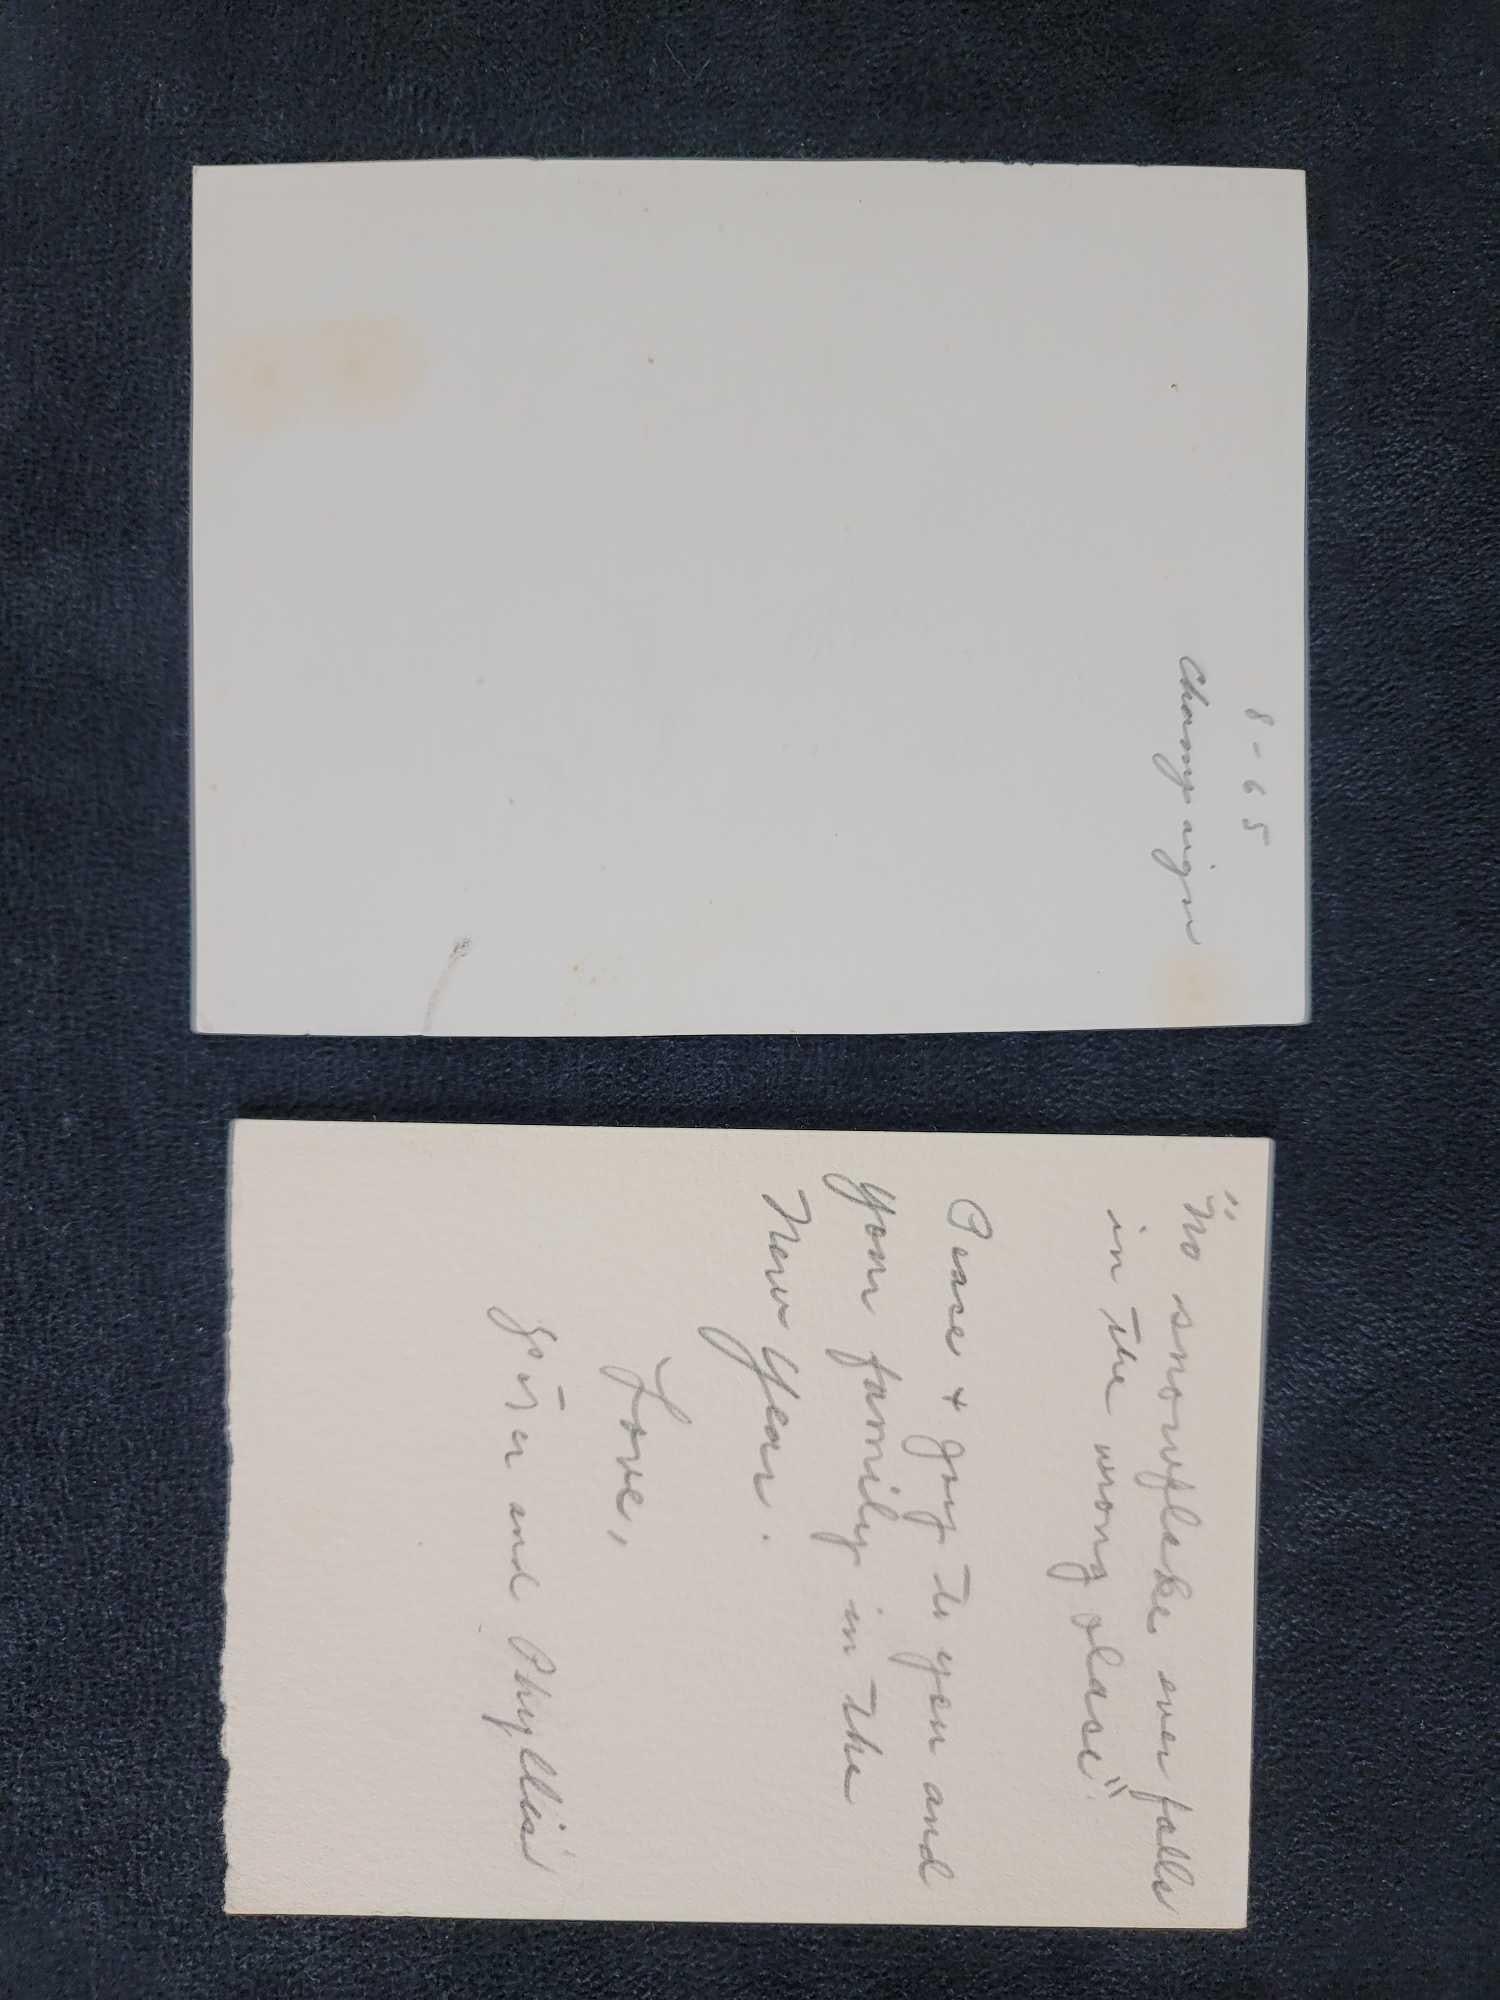 8-65
Champaign
"No snowflake ever falls
in the wrong place".
Peace + joy to you and
your family in the
New Year.
Love,
and Phyllis